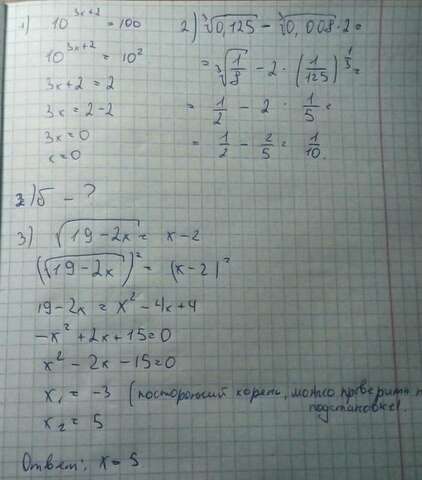 1) 10^(3x+2) = 100
10^(3x+2) = 10^2
3x+2 = 2
3x = 2-2
3x = 0
x = 0
2) ∛0,125 - ∛0,008 · 2 =
= ∛(1/8) - 2 · (1/125)^(1/3) =
= 1/2 - 2 · 1/5 =
= 1/2 - 2/5 = 1/10.
2) б - ?
3) √(19-2x) = x-2
(√(19-2x))^2 = (x-2)^2
19-2x = x^2-4x+4
-x^2+2x+15=0
x^2-2x-15=0
x₁ = -3 (посторонний корень, можно проверить
подстановке).
x₂ = 5
Ответ: x = 5